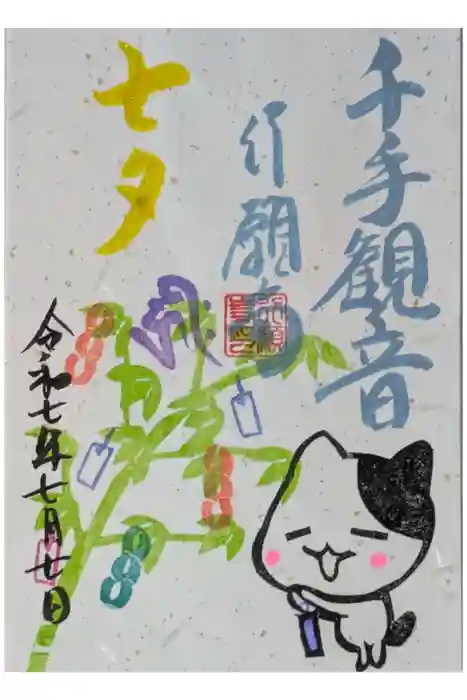 千手観音
行願寺
七夕
令和七年七月七日